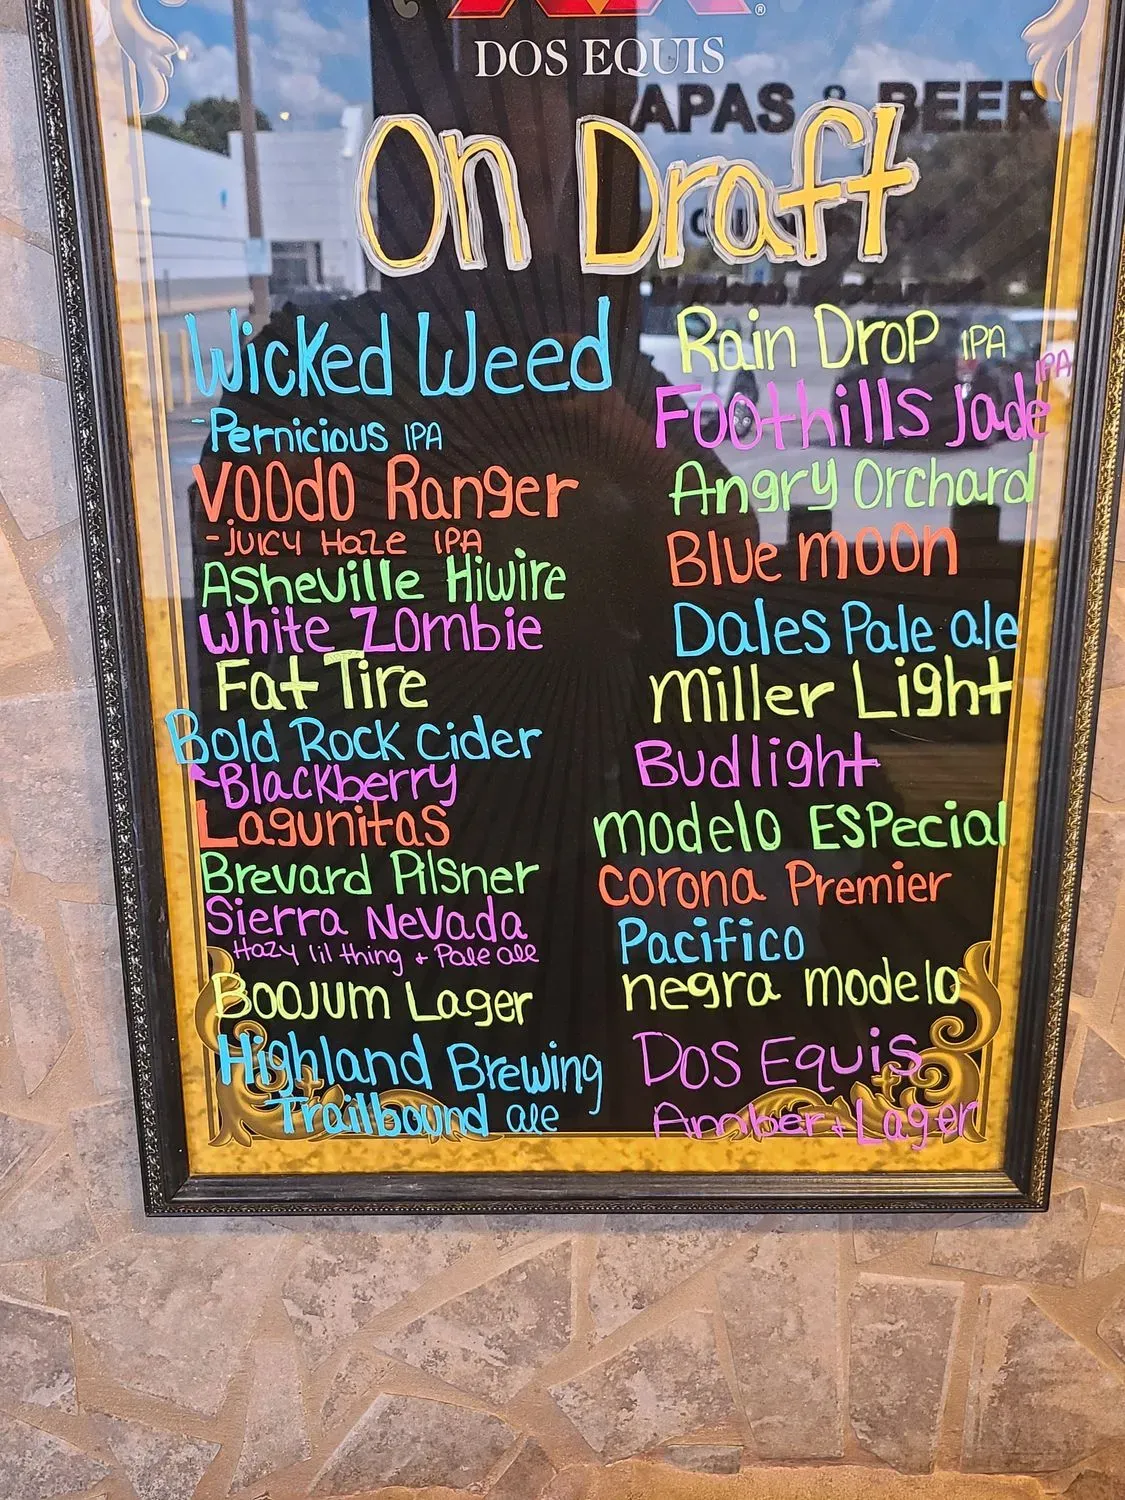 DOS EQUIS
APAS & BEER
On Draft
Wicked Weed
-Pernicious IPA
VOODOO Ranger
-JUICY HAZE IPA
Asheville Hiwire
White Zombie
Fat Tire
Bold Rock Cider
Blackberry
Lagunitas
Brevard Pilsner
Sierra Nevada
Hazy lil thing + Pale ale
BOOJUM Lager
Highland Brewing
Trailbound ale
Rain Drop IPA
Foothills Jade IPA
Angry Orchard
Blue moon
Dales Pale ale
Miller Light
Budlight
modelo ESPecial
Corona Premier
Pacifico
negra modelo
Dos Equis
Amber + Lager